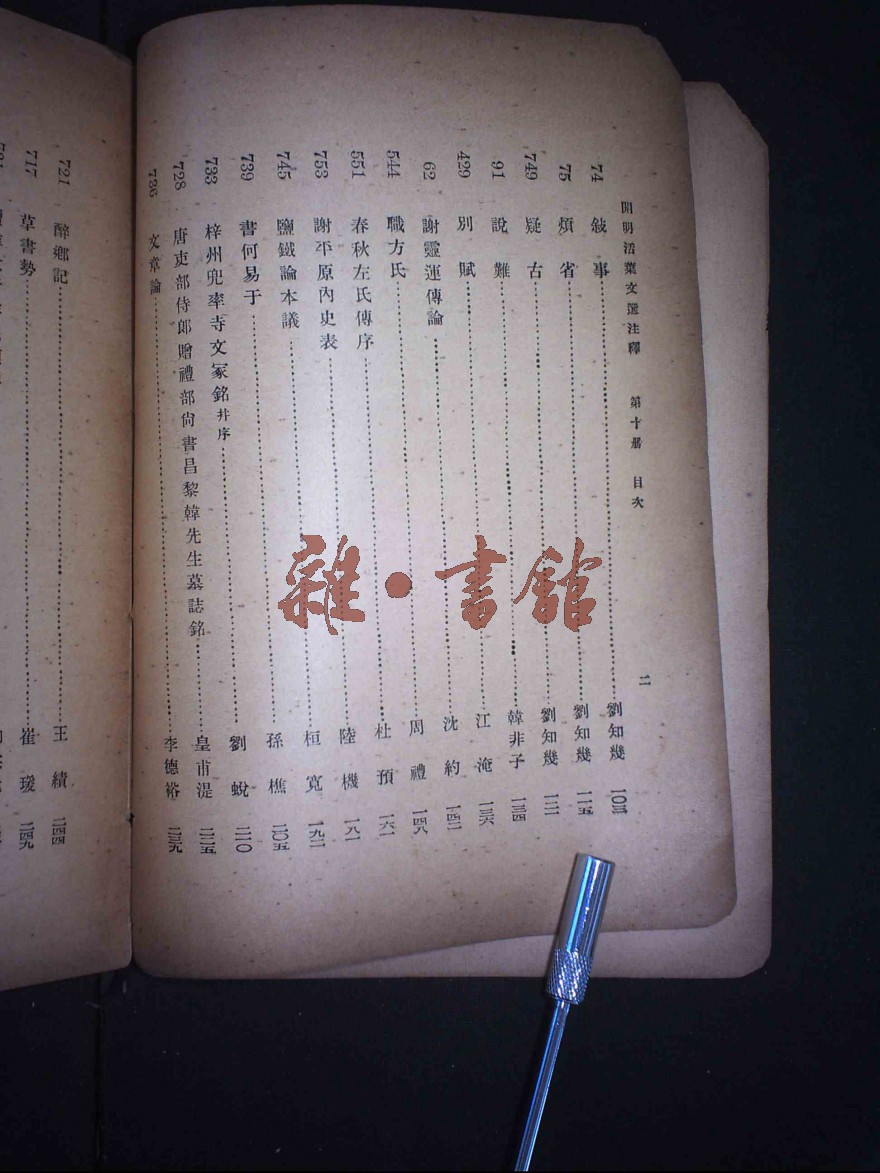 開明活葉文選注釋 第十册 目次 二
74 敍事 劉知幾 一〇三
75 煩省 劉知幾 一一五
749 疑古 劉知幾 一二一
91 說難 韓非子 一三四
429 別賦 江淹 一三六
62 謝靈運傳論 沈約 一四二
544 職方氏 周禮 一四八
551 春秋左氏傳序 杜預 一六一
753 謝平原內史表 陸機 一八一
745 鹽鐵論本議 桓寬 一九二
739 書何易于 孫樵 二〇五
733 梓州兜率寺文冢銘并序 劉蛻 二二〇
728 唐吏部侍郞贈禮部尙書昌黎韓先生墓誌銘 皇甫湜 二二五
736 文章論 李德裕 二三九
721 醉鄉記 王績 二四四
717 草書勢 崔瑗 二四九
雜·書館